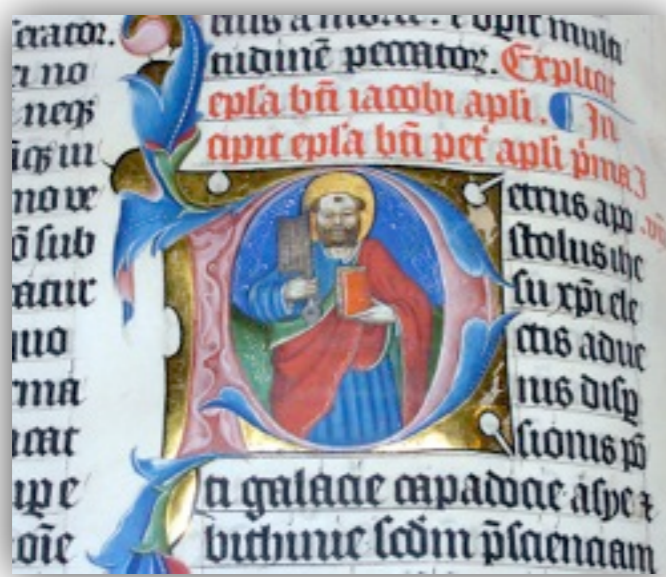 terator.
ci no
neqs
iqs in
mo ve
o sub
atur
quo
rma
ncat
upe
oie
tius a morte. t opit multi
tudinē peccator. Explicit
epła bti iacobi apłi. In
cipit epła bti pet' apłi pma
etrus apo
stolus ihe
su xpi ele
ctis adue
nis disp
sionis pō
ti galacie capadocie asye ⁊
bithinie scdm pscienciam